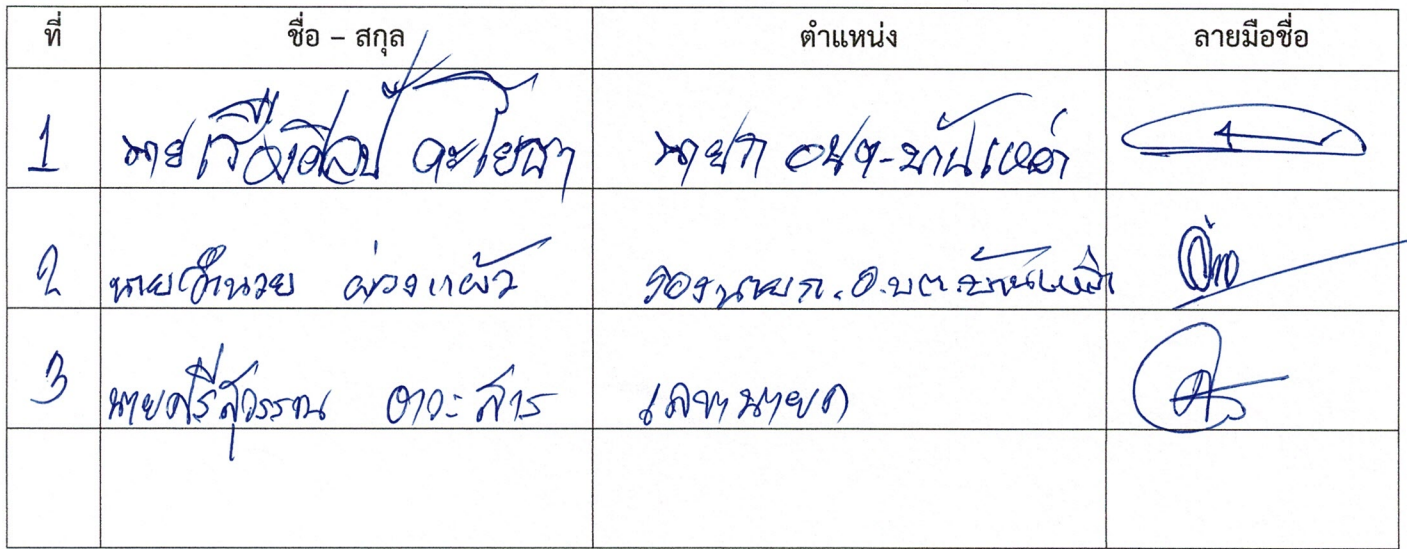 ที่ ชื่อ – สกุล ตำแหน่ง ลายมือชื่อ
1 นายเรืองศิลป์ คะโยธา นายก อบต-บ้านเหล่า
2 นายอำนวย ผ่องแผ้ว รองนายก.อ.บต.บ้านเหล่า
3 นายศรีสุวรรณ อาวะสาร เลขานายก